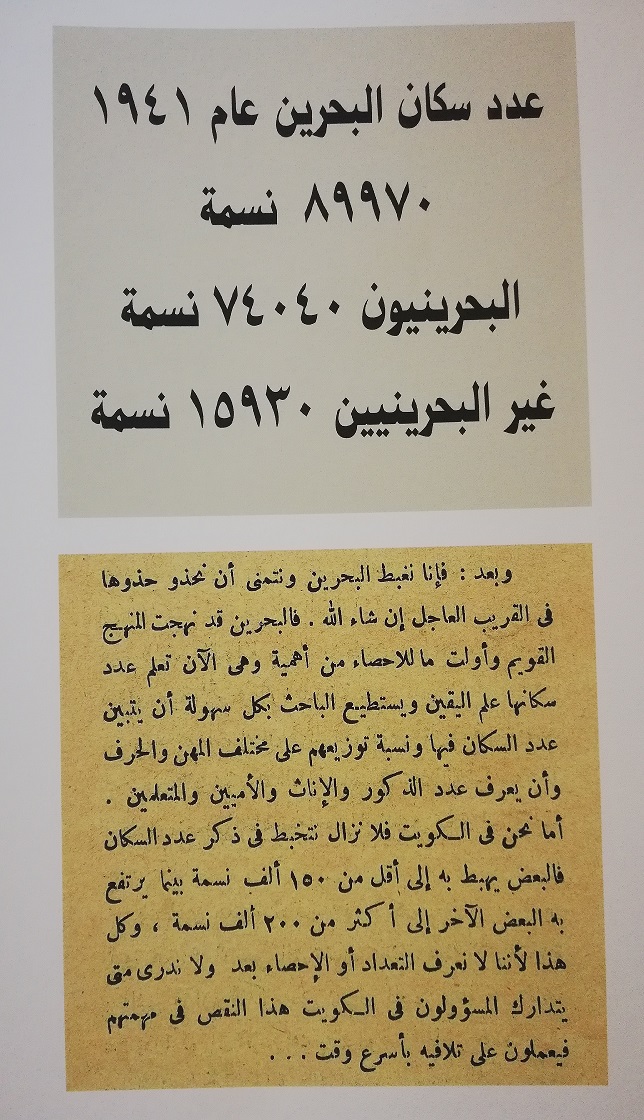 عدد سكان البحرين عام ١٩٤١
٨٩٩٧٠ نسمة
البحرينيون ٧٤٠٤٠ نسمة
غير البحرينيين ١٥٩٣٠ نسمة
وبعد : فإنا نغبط البحرين ونتمنى أن نحذو حذوها
فى القريب العاجل إن شاء الله . فالبحرين قد نهجت المنهج
القويم وأولت ما للاحصاء من أهمية وهى الآن تعلم عدد
سكانها علم اليقين ويستطيع الباحث بكل سهولة أن يتبين
عدد السكان فيها ونسبة توزيعهم على مختلف المهن والحرف
وأن يعرف عدد الذكور والإناث والأميين والمتعلمين .
أما نحن فى الكويت فلا نزال نتخبط فى ذكر عدد السكان
فالبعض يهبط به إلى أقل من ١٥٠ ألف نسمة بينما يرتفع
به البعض الآخر إلى أكثر من ٢٠٠ ألف نسمة ، وكل
هذا لأننا لا نعرف التعداد أو الإحصاء بعد ولا ندرى متى
يتدارك المسؤولون فى الكويت هذا النقص فى مهمتهم
فيعملون على تلافيه بأسرع وقت . . .